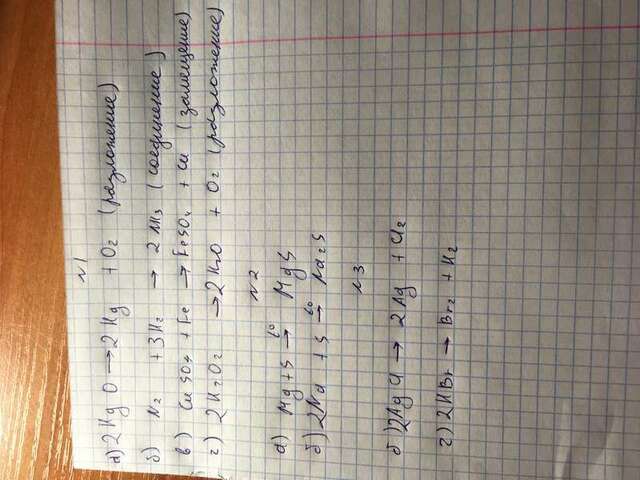 N1
а) 2HgO → 2Hg + O₂ (разложение)
б) N₂ + 3H₂ → 2NH₃ (соединение)
в) CuSO₄ + Fe → FeSO₄ + Cu (замещение)
г) 2H₂O₂ → 2H₂O + O₂ (разложение)
N2
а) Mg + S t° → MgS
б) 2Na + S t° → Na₂S
N3
б) 2AgCl → 2Ag + Cl₂
г) 2HBr → Br₂ + H₂